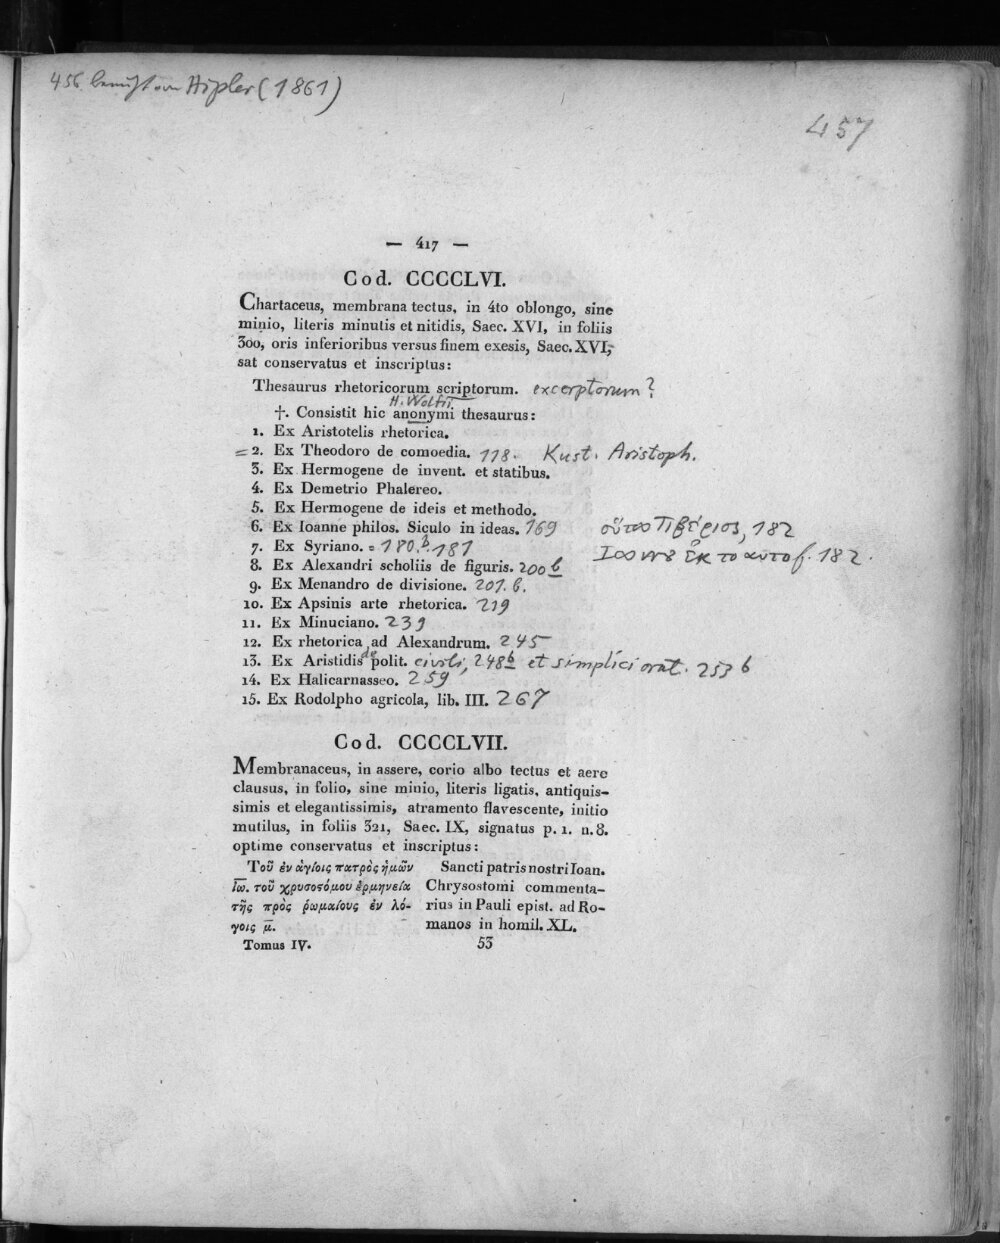 456 benutzt von Hipler (1861)
457
— 417 —
Cod. CCCCLVI.
Chartaceus, membrana tectus, in 4to oblongo, sine
minio, literis minutis et nitidis, Saec. XVI, in foliis
300, oris inferioribus versus finem exesis, Saec. XVI,
sat conservatus et inscriptus:
Thesaurus rhetoricorum scriptorum. excerptorum?
H. Wolfii
†. Consistit hic anonymi thesaurus:
1. Ex Aristotelis rhetorica.
= 2. Ex Theodoro de comoedia. 118. Kust. Aristoph.
3. Ex Hermogene de invent. et statibus.
4. Ex Demetrio Phalereo.
5. Ex Hermogene de ideis et methodo.
6. Ex Ioanne philos. Siculo in ideas. 169 Τιβέριος, 182
7. Ex Syriano. = 180.b. 181 ἐκ το αυτο f. 182.
8. Ex Alexandri scholiis de figuris. 200 b
9. Ex Menandro de divisione. 201. b.
10. Ex Apsinis arte rhetorica. 219
11. Ex Minuciano. 239
12. Ex rhetorica ad Alexandrum. 245
13. Ex Aristidis de polit. civili, 248b et simplici orat. 253 b
14. Ex Halicarnasseo. 259
15. Ex Rodolpho agricola, lib. III. 267
Cod. CCCCLVII.
Membranaceus, in assere, corio albo tectus et aere
clausus, in folio, sine minio, literis ligatis, antiquis-
simis et elegantissimis, atramento flavescente, initio
mutilus, in foliis 321, Saec. IX, signatus p. 1. n. 8.
optime conservatus et inscriptus:
Τοῦ ἐν ἁγίοις πατρὸς ἡμῶν
Ιω. τοῦ χρυσοϛόμου ἑρμηνεία
τῆς πρὸς ῥωμαίους ἐν λό-
γοις μ̅.
Sancti patris nostri Ioan.
Chrysostomi commenta-
rius in Pauli epist. ad Ro-
manos in homil. XL.
Tomus IV. 53